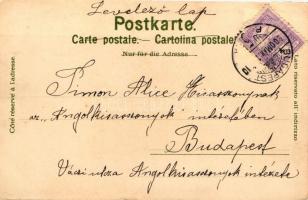 Levelező lap
Postkarte.
Carte postale. — Cartolina postale
Nur für die Adresse.
Côté réservé à l'adresse.
Lato riservato all' indirizzo
BUDAPEST
Simon Alice Kisasszonynak
az "Angolkisasszonyok" intézetében
Budapest
Váci utca Angolkisasszonyok intézete